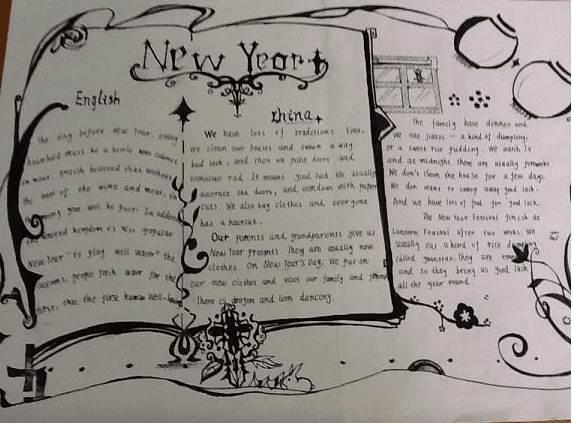 New Year
English
The day before New Year, every
household must be a bottle wine cabinet
in meat. British believed that without
the rest of the wine and meat, in
coming year will be poor. In addition
united kingdom is also popular
New Year "to play well water" the
customs, people fetch water for the
first, that the first human well-being
China
We have lots of traditions. First,
we clean our houses and sweep away
bad luck, and then we paint doors and
windows red. It means good luck. We usually
decorate the doors, and windows with paper
cuts. We also buy clothes and everyone
has a haircut.
Our parents and grandparents give us
New Year presents. They are usually new
clothes. On New Year's Day, we put on
our new clothes and visit our family and
There is dragon and lion dancing.
The family have dinner and
we eat jiaozi - a kind of dumpling,
or a sweet rice pudding. We watch TV
and at midnight there are usually fireworks
We don't clean the house for a few days.
We don want to sweep away good luck.
And we have lots of food for good luck.
The New Year Festival finish at
Lantern Festival after two weeks. We
usually eat a kind of rice dumpling
called yuanxiao. They are
and so they bring us good luck
all the year round.